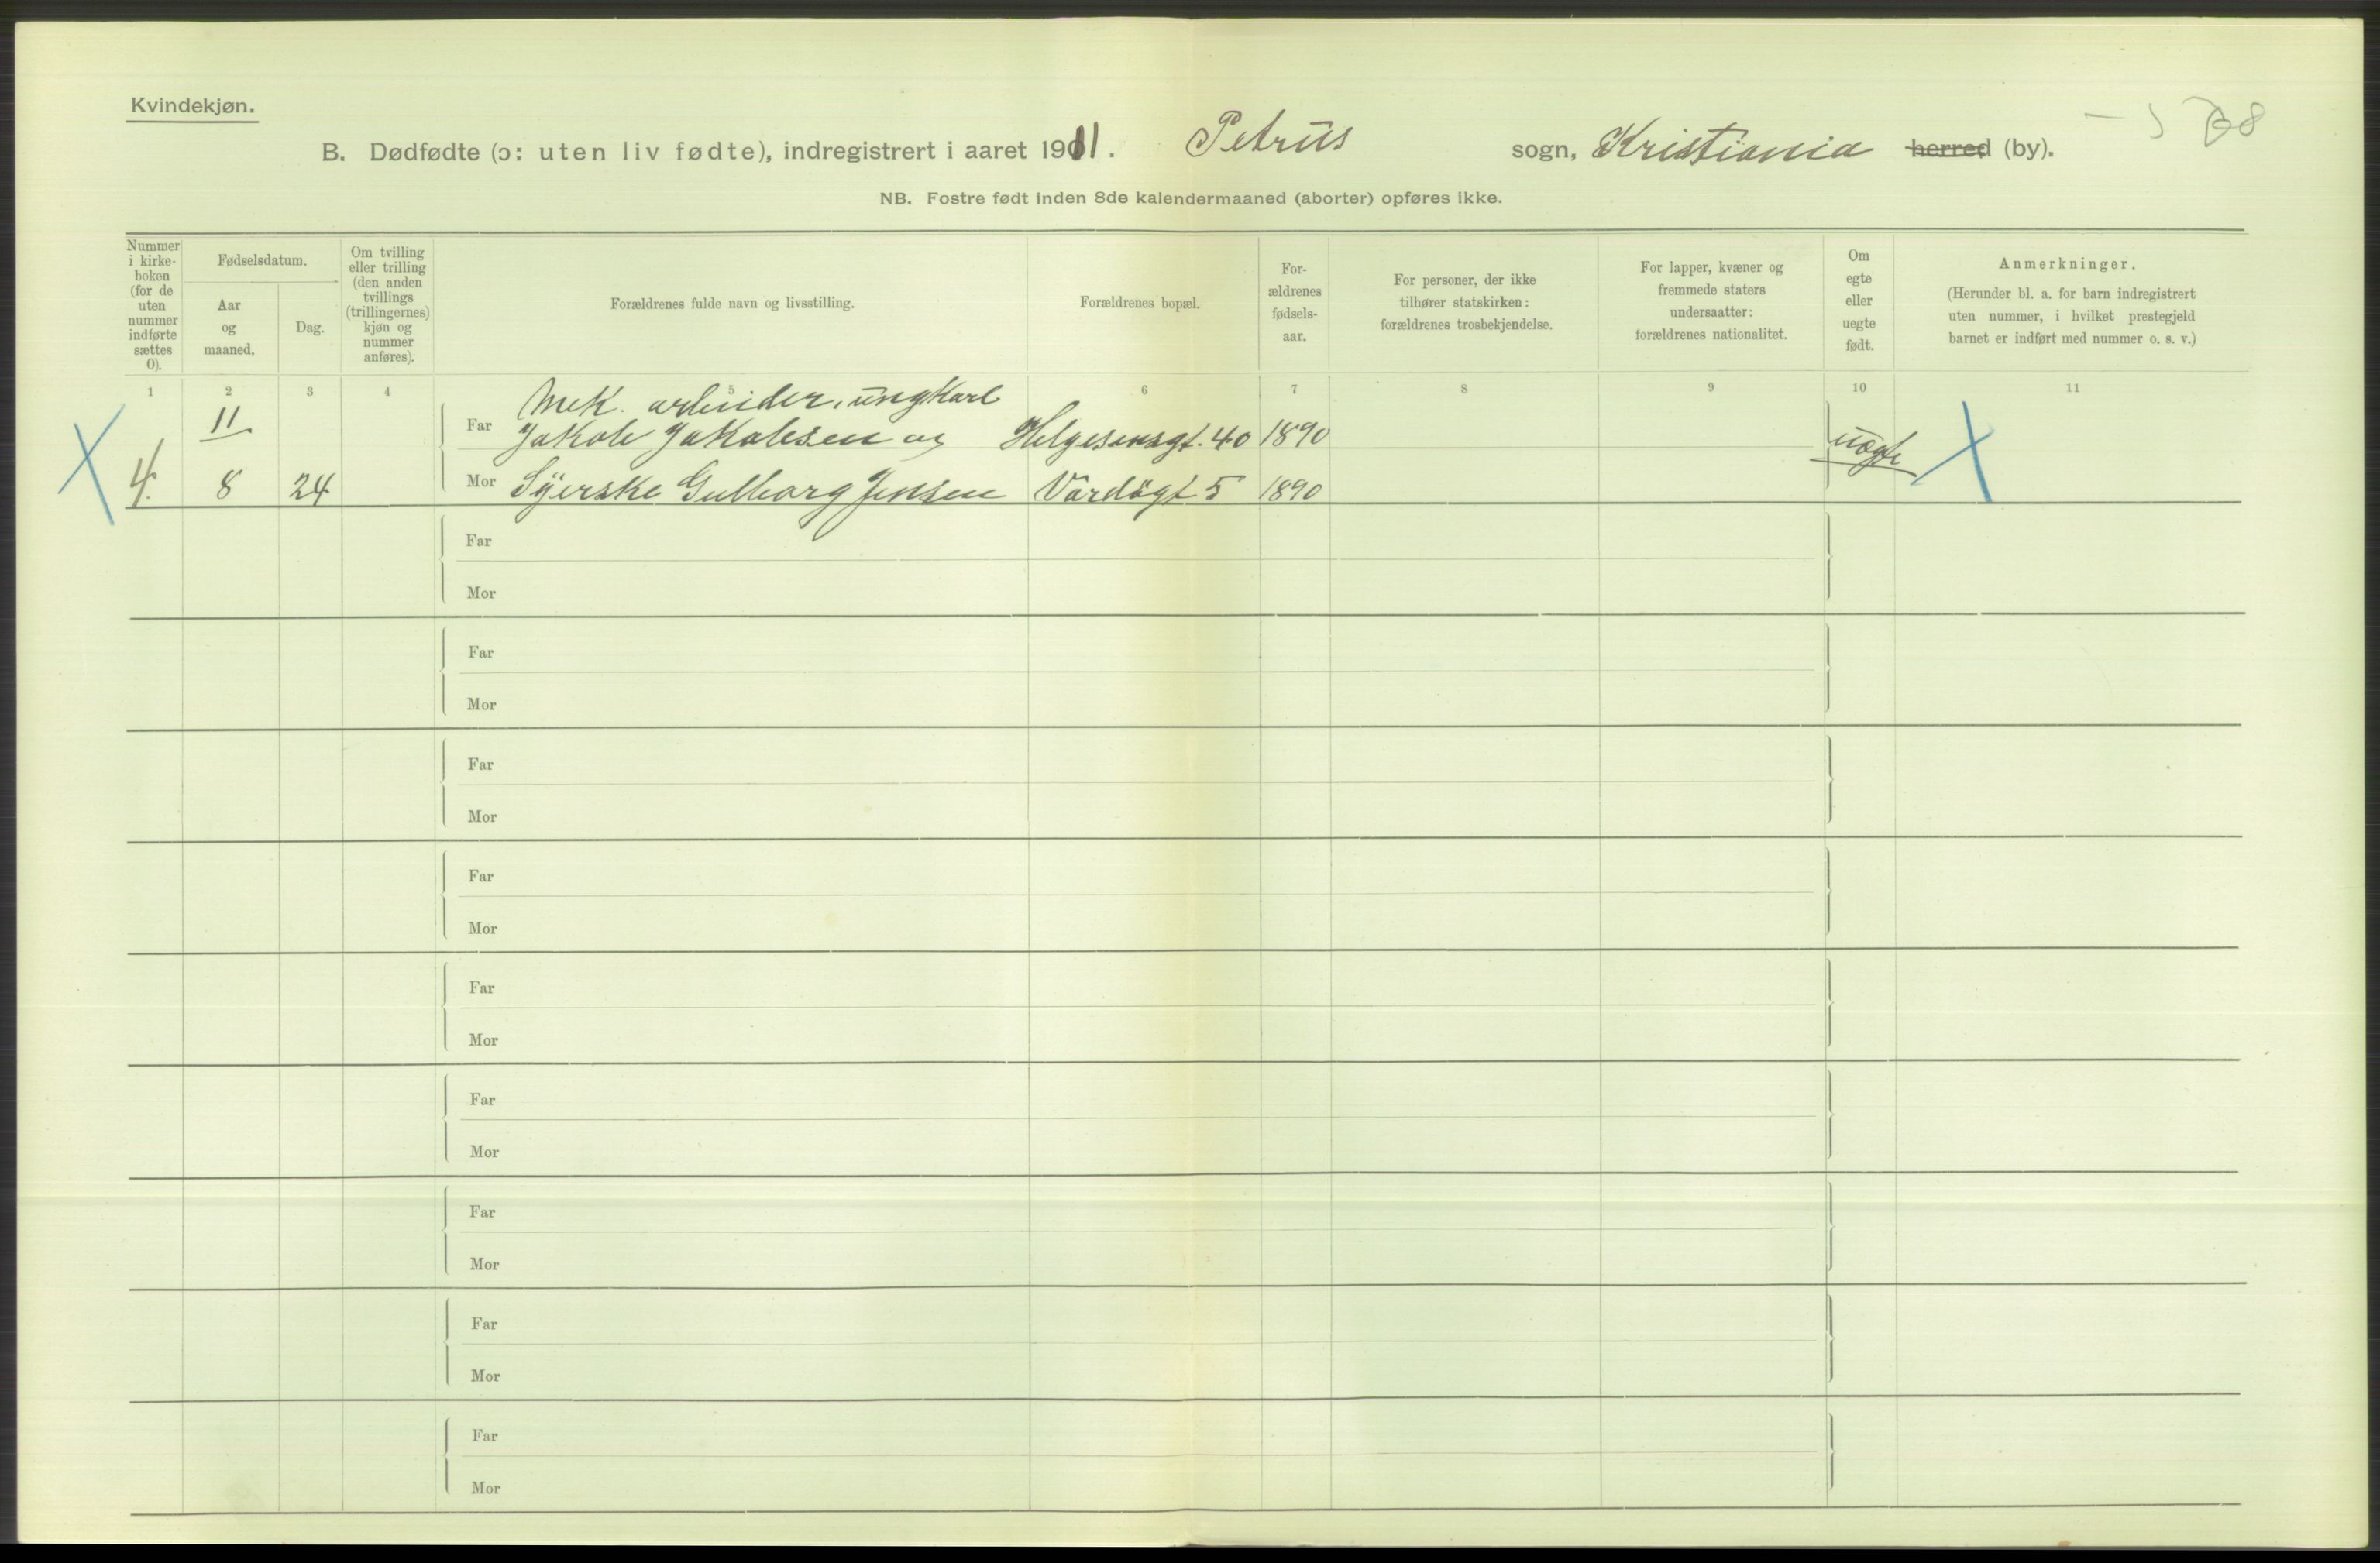 Kvindekjøn.
B. Dødfødte (ɔ: uten liv fødte), indregistrert i aaret 1911. Petrus sogn, Kristiania herred (by).
NB. Fostre født inden 8de kalendermaaned (aborter) opføres ikke.
Nummer
i kirke-
boken
(for de
uten
nummer
indførte
sættes
0).
Fødselsdatum.
Aar
og
maaned.
Dag.
Om tvilling
eller trilling
(den anden
tvillings
(trillingernes)
kjøn og
nummer
anføres).
Forældrenes fulde navn og livsstilling.
Forældrenes bopæl.
For-
ældrenes
fødsels-
aar.
For personer, der ikke
tilhører statskirken:
forældrenes trosbekjendelse.
For lapper, kvæner og
fremmede staters
undersaatter:
forældrenes nationalitet.
Om
egte
eller
uegte
født.
Anmerkninger.
(Herunder bl. a. for barn indregistrert
uten nummer, i hvilket prestegjeld
barnet er indført med nummer o. s. v.)
1 2 3 4 5 6 7 8 9 10 11
Mek. arbeider, ungkarl
11
Far Jakob Jakobsen og Helgesensgt. 40 1890 uægte
4. 8 24 Mor Syerske Gulborg Jensen Vardøgt 5 1890
Far
Mor
Far
Mor
Far
Mor
Far
Mor
Far
Mor
Far
Mor
Far
Mor
Far
Mor
Far
Mor